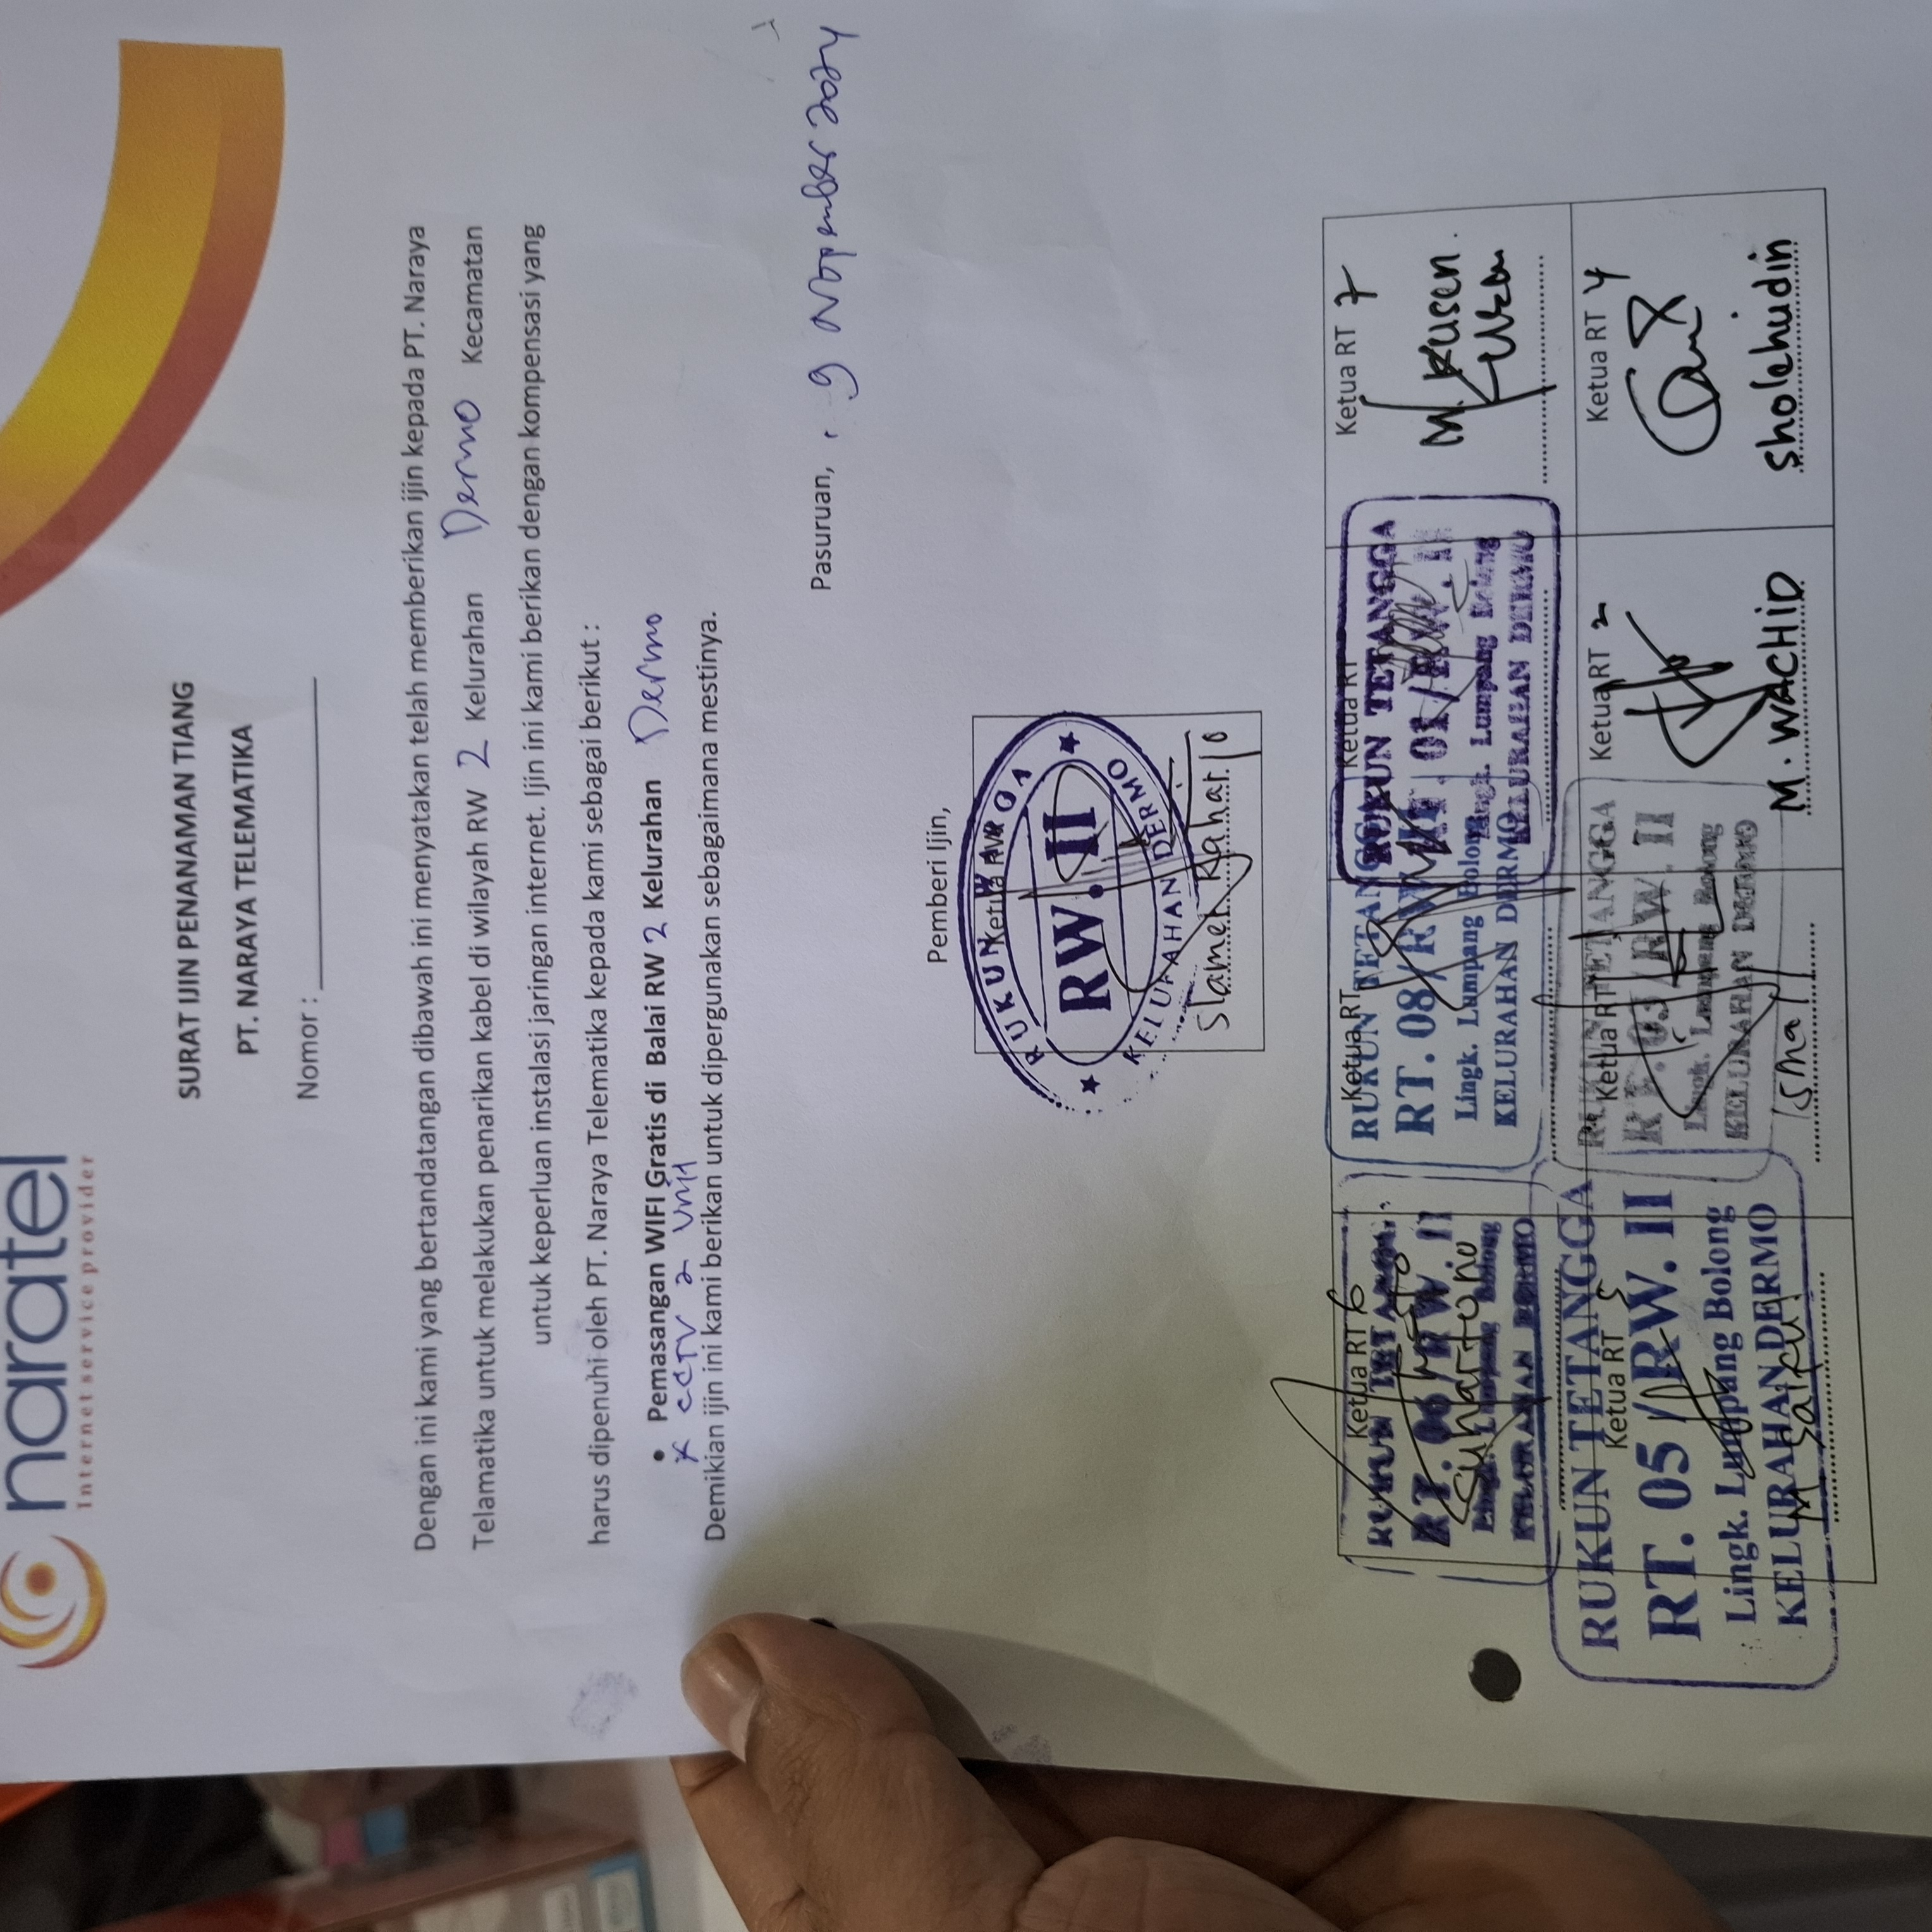 naratel
Internet service provider
SURAT IJIN PENANAMAN TIANG
PT. NARAYA TELEMATIKA
Nomor :
Dengan ini kami yang bertandatangan dibawah ini menyatakan telah memberikan ijin kepada PT. Naraya
Telamatika untuk melakukan penarikan kabel di wilayah RW 2 Kelurahan Dermo Kecamatan
untuk keperluan instalasi jaringan internet. Ijin ini kami berikan dengan kompensasi yang
harus dipenuhi oleh PT. Naraya Telematika kepada kami sebagai berikut :
• Pemasangan WIFI Gratis di Balai RW 2 Kelurahan Dermo
x CCTV 2 Unit
Demikian ijin ini kami berikan untuk dipergunakan sebagaimana mestinya.
Pasuruan, 9 Nopember 2024
Pemberi Ijin,
Ketua RW
RUKUN WARGA
RW. II
KELURAHAN DERMO
Slamet Raharjo
Ketua RT 6
RUKUN TETANGGA
RT. 06/RW. II
Suhartono
Lingk. Lumpang Bolong
KELURAHAN DERMO
Ketua RT
RUKUN TETANGGA
RT. 08/RW. II
Lingk. Lumpang Bolong
KELURAHAN DERMO
Ketua RT
RUKUN TETANGGA
RT. 01/RW. II
Lingk. Lumpang Bolong
KELURAHAN DERMO
Ketua RT 7
M. Kusen
RUKUN TETANGGA
Ketua RT 5
RT. 05/RW. II
Lingk. Lumpang Bolong
KELURAHAN DERMO
M Saiful
RUKUN TETANGGA
Ketua RT
RT. 03/RW. II
Lingk. Lumpang Bolong
KELURAHAN DERMO
Ismail
Ketua RT 2
M. WACHID
Ketua RT 4
Sholehudin